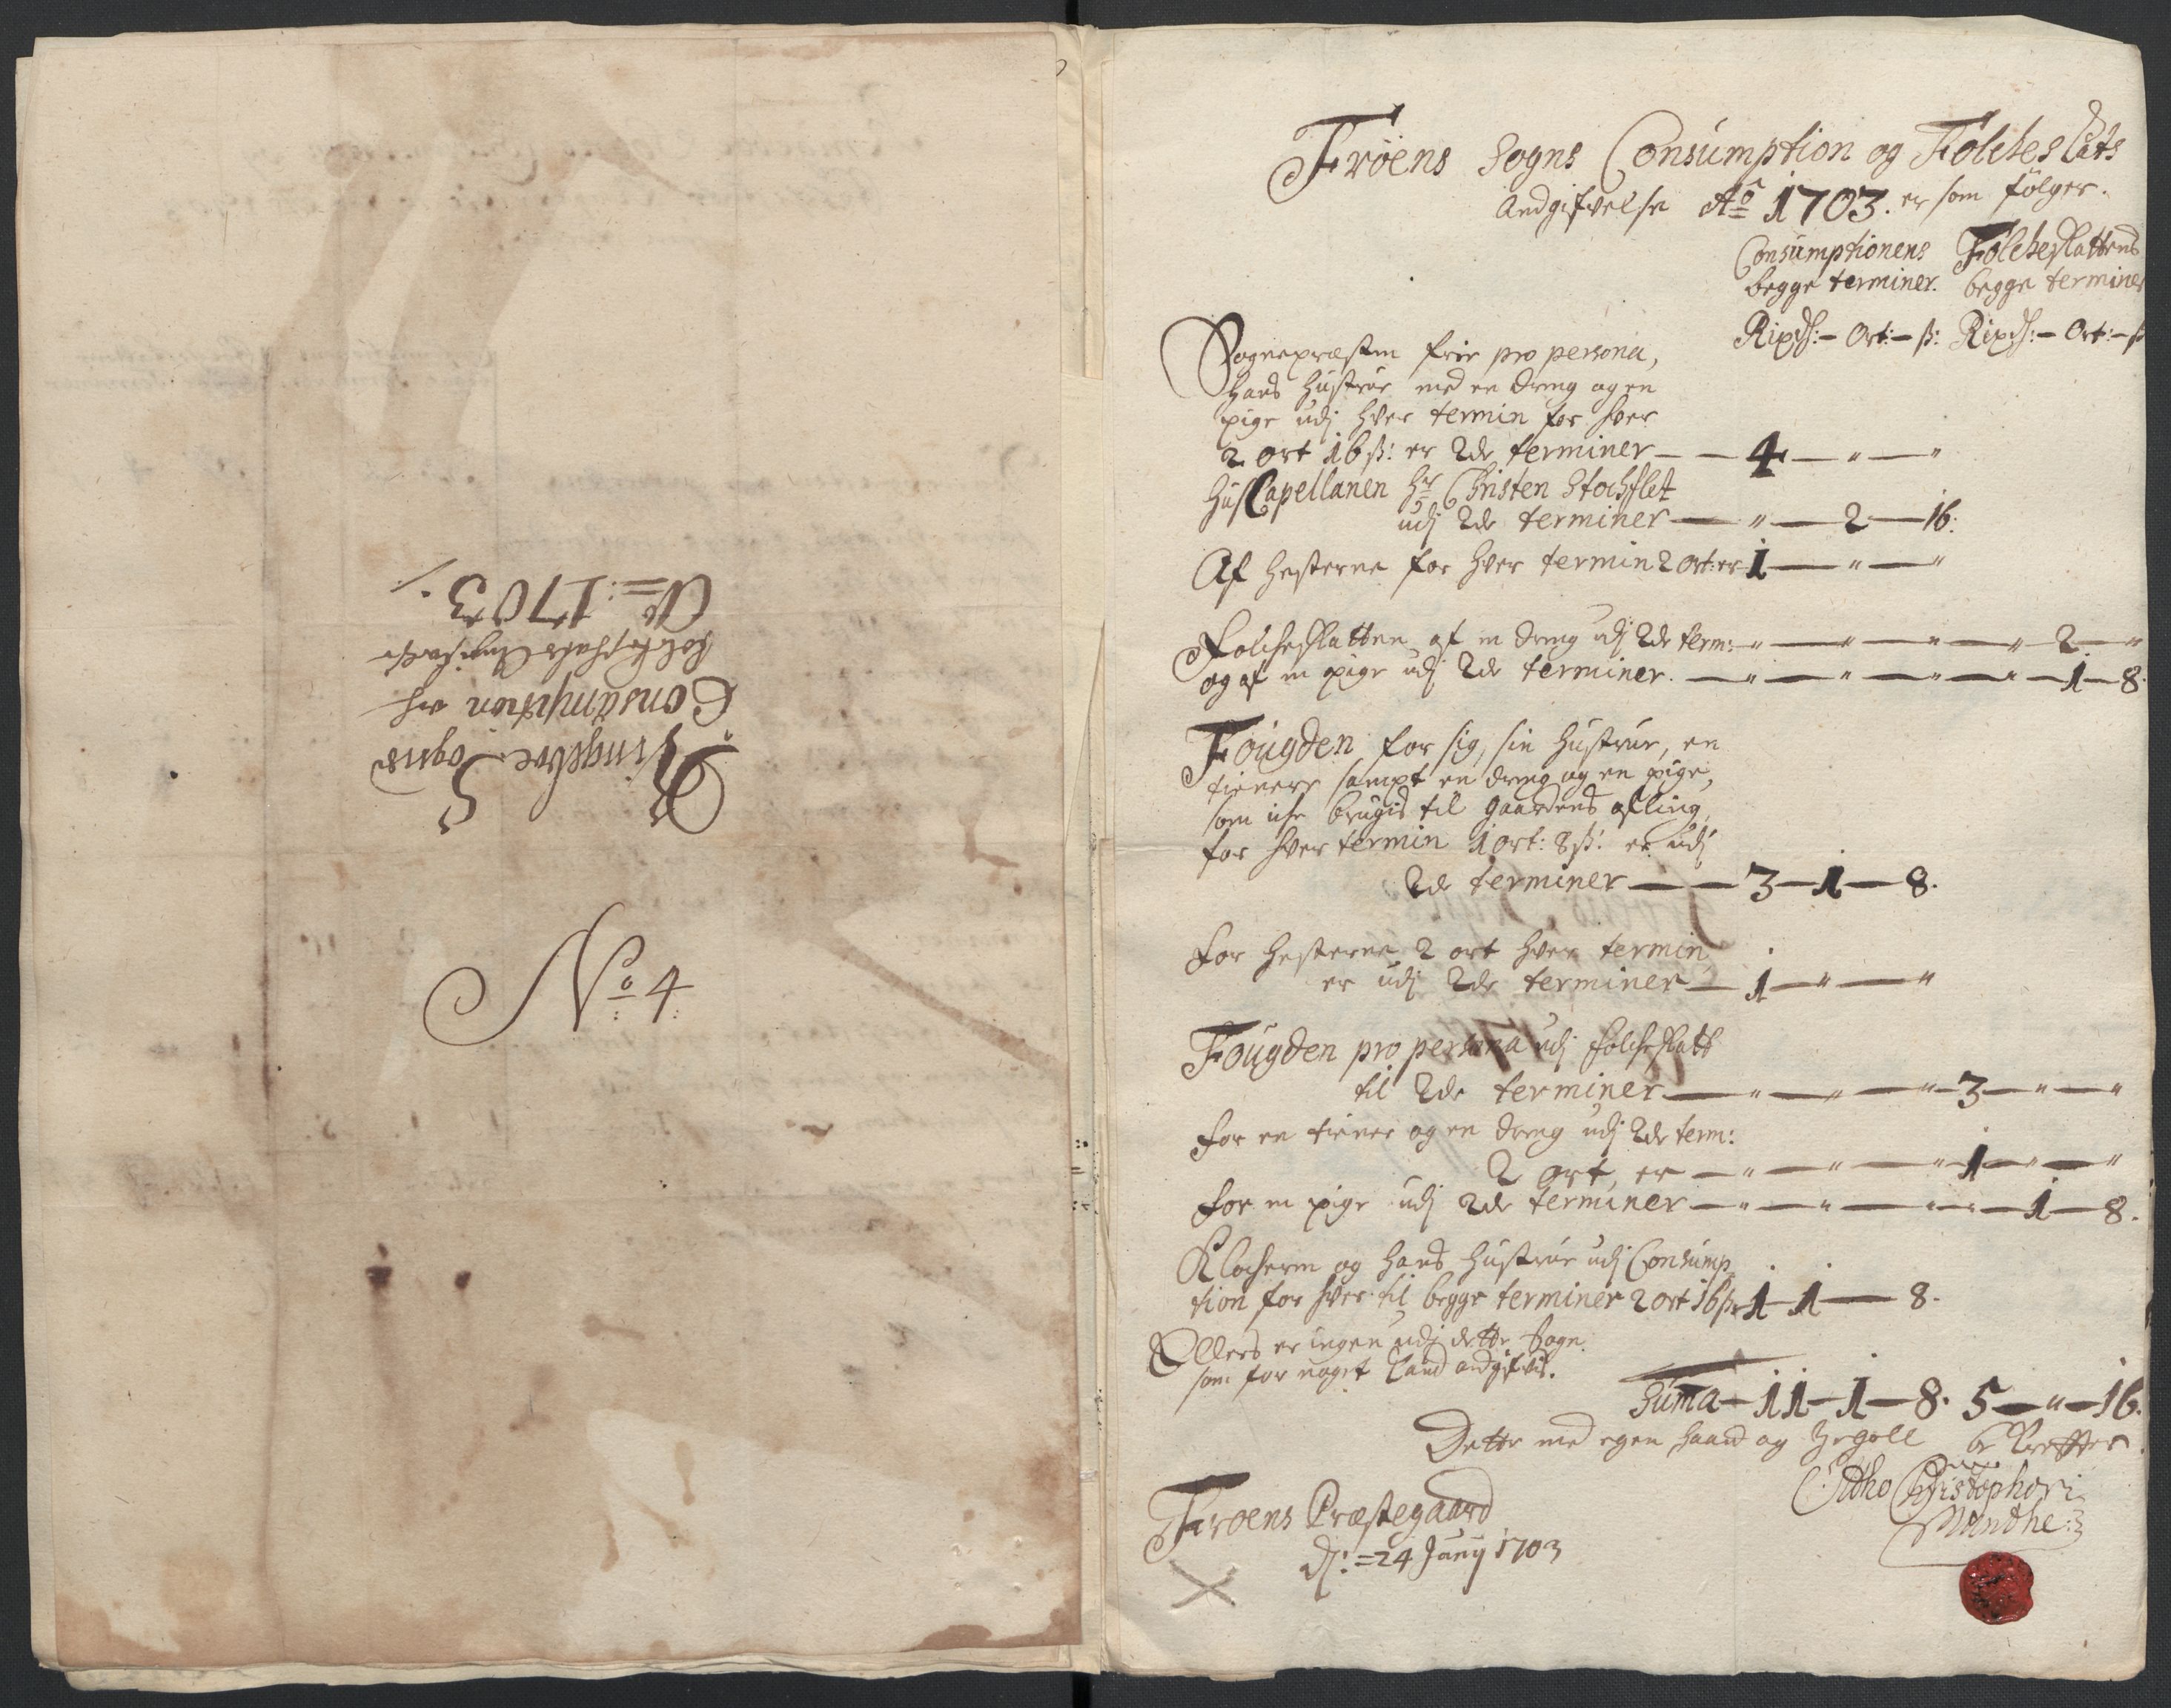 Ringeboe Sogns
Consumption och
Folcheschats Angifvelse
Ao: 1703.
No 4
Frøens Sogns Consumption og Folcheskats
Andgifvelse Ao 1703. er som følger.
Consumptionens Folcheskattens
begge terminer. begge terminer
Rixdl:- Ort:- s: Rixdl:- Ort:- s
Sognepræsten frir pro persona,
hans hustrue med en dreng og en
pige udj hver termin for hver
2 ort 16 s: er 2de terminer — 4 — " — "
HusCapellanen Hr Christen Stochflet
udj 2de terminer — " — 2 — 16.
Af hesterne for hver termin 2 ort: er 1 — " — "
Folcheskatten af en dreng udj 2de term: " — " — " — " — 2 — "
og af en pige udj 2de terminer. — " — " — " — " — 1 — 8.
Fougden for sig, sin hustrue, en
tienere sampt en dreng og en pige,
som iche brugis til gaardens afling,
for hver termin 1 ort: 8 s: er udj
2de terminer — 3 — 1 — 8.
for hesterne 2 ort hver termin
er udj 2de terminer — 1 — " — "
Fougden pro persona udj folcheskatt
til 2de terminer — " — " — " — 3 — " — "
for en tiener og en dreng udj 2de term:
2 ort, er — " — " — " — 1 — " — "
for en pige udj 2de terminer — " — " — " — " — 1 — 8.
Klocheren og hans hustrue udj Consump
tion for hver til begge terminer 2 ort 16 s: 1 — 1 — 8.
Ellers er ingen udj dette Sogn
som for noget kand andgifvis.
Suma — 11 — 1 — 8. 5 — " — 16.
Dette med egen haand og Segell bekreffter.
Otho Christophori
Munthe
Froens Præstegaard
dj: =24 Junij 1703